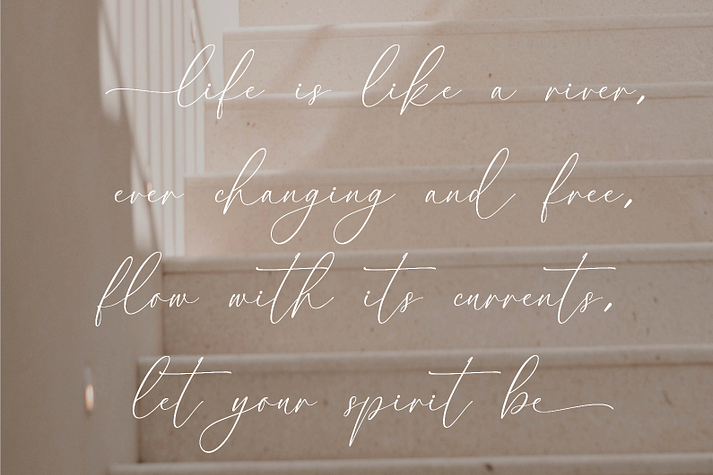 life is like a river,
ever changing and free,
flow with its currents,
let your spirit be